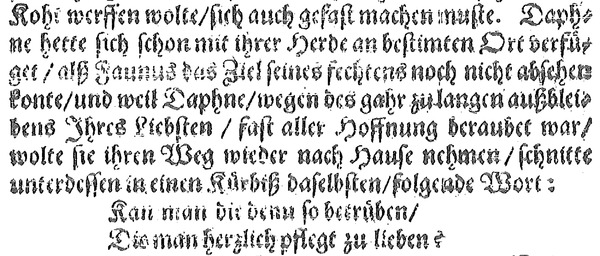 Kohl werffen wolte/sich auch gefast machen muste. Daph⸗
ne hette sich schon mit ihrer Herde an bestimten Ort verfü⸗
get / alß Faunus das Ziel seines fechtens noch nicht absehen
konte/und weil Daphne/wegen des gahr zu langen außblei⸗
bens Ihres Liebsten / fast aller Hoffnung beraubet war/
wolte sie ihren Weg wieder nach Hause nehmen / schnitte
unterdessen in einen Kürbiß daselbsten/folgende Wort:
Kan man die denn so betrüben/
Die man herzlich pflegt zu lieben?